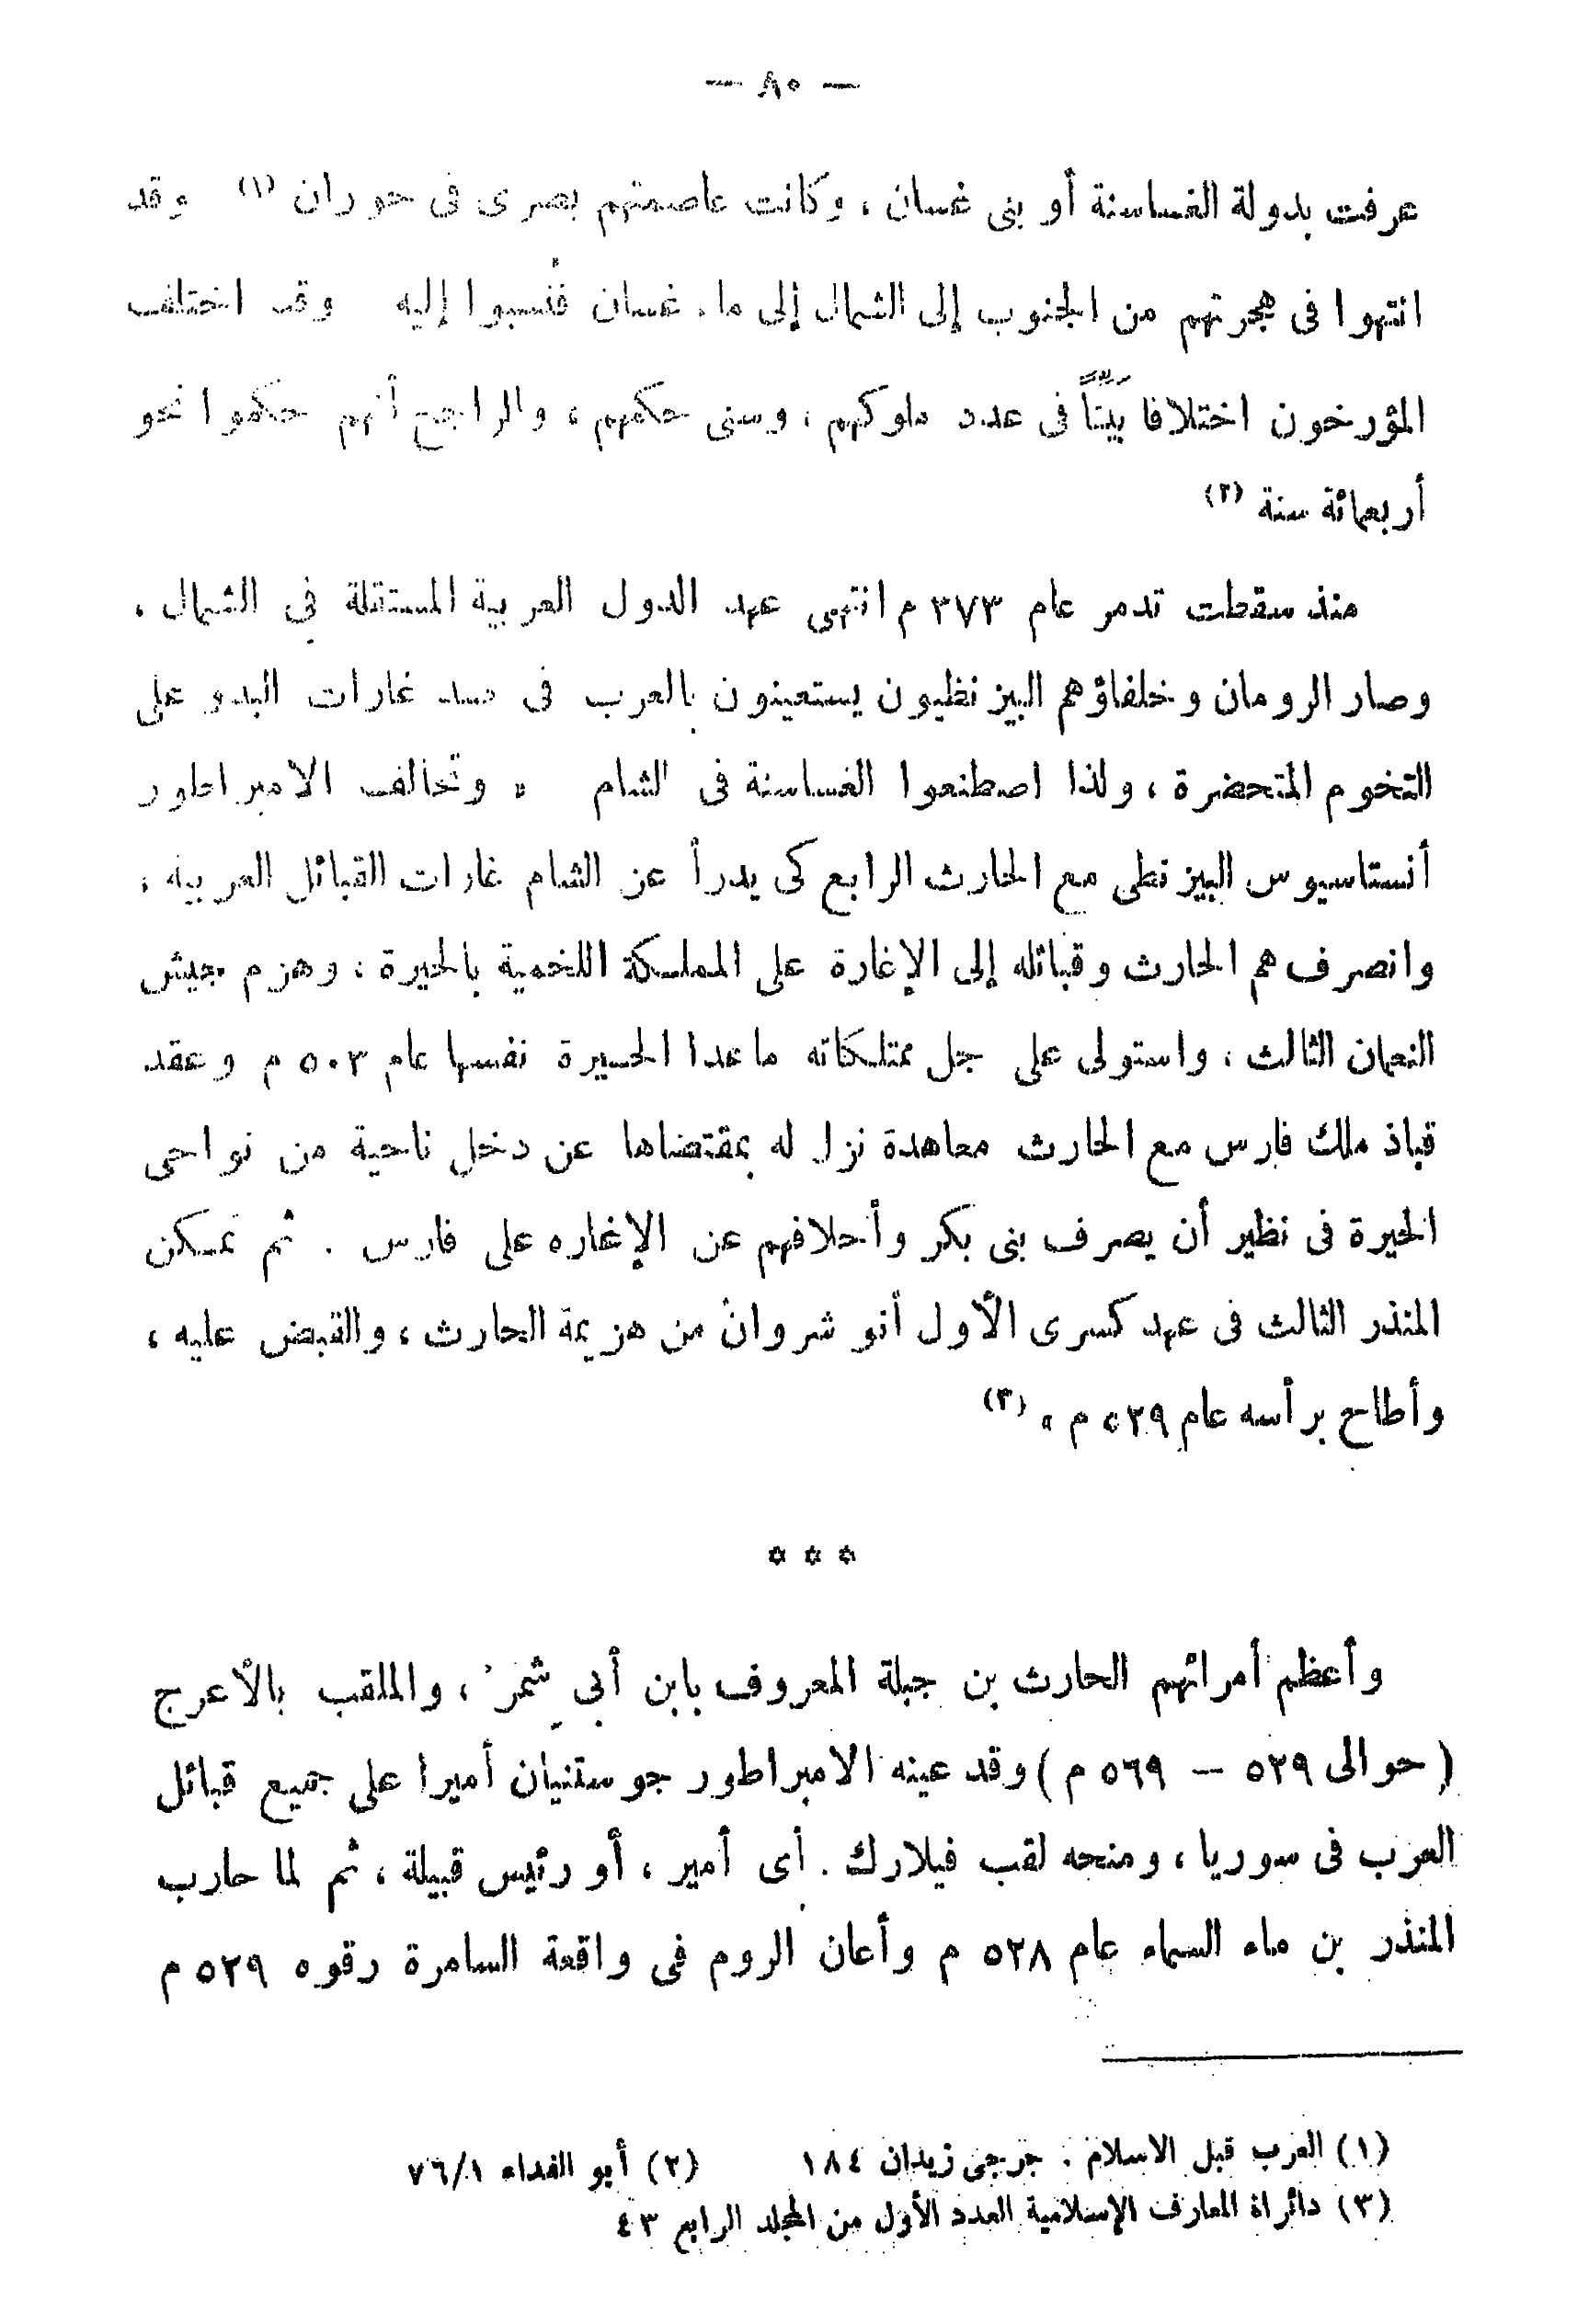 — ٨٠ —
عرفت بدولة الغساسنة أو بنى غسان ، وكانت عاصمتهم بصرى فى حوران (١) وقد
انتهوا فى هجرتهم من الجنوب إلى الشمال إلى ماء غسان فنُسبوا إليه وقد اختلف
المؤرخون اختلافا بَيِّناً فى عدد ملوكهم ، وسنى حكمهم ، والراجح أنهم حكموا نحو
أربعمائة سنة (٢)
منذ سقطت تدمر عام ٣٧٣ م انتهى عهد الدول العربية المستقلة فى الشمال ،
وصار الرومان وخلفاؤهم البيزنطيون يستعينون بالعرب فى صد غارات البدو على
التخوم المتحضرة ، ولذا اصطنعوا الغساسنة فى الشام . وتحالف الامبراطور
أنستاسيوس البيزنطى مع الحارث الرابع كى يدرأ عن الشام غارات القبائل العربية ،
وانصرف هم الحارث وقبائله إلى الإغارة على المملكة اللخمية بالحيرة ، وهزم جيش
النعمان الثالث ، واستولى على جل ممتلكاته ماعدا الحيرة نفسها عام ٥٠٣ م وعقد
قباذ ملك فارس مع الحارث معاهدة نزل له بمقتضاها عن دخل ناحية من نواحى
الحيرة فى نظير أن يصرف بنى بكر وأحلافهم عن الإغاره على فارس . ثم تمكن
المنذر الثالث فى عهد كسرى الأول أنو شروان من هزيمة الحارث ، والقبض عليه ،
وأطاح برأسه عام ٥٢٩ م . (٣)
* * *
وأعظم أمرائهم الحارث بن جبلة المعروف بابن أبى شمر ، والملقب بالأعرج
( حوالى ٥٢٩ – ٥٦٩ م ) وقد عينه الامبراطور جوستنيان أميرا على جميع قبائل
العرب فى سوريا ، ومنحه لقب فيلارك . أى أمير ، أو رئيس قبيلة ، ثم لما حارب
المنذر بن ماء السماء عام ٥٢٨ م وأعان الروم فى واقعة السامرة رقوه ٥٢٩ م
(١) العرب قبل الاسلام . جرجى زيدان ١٨٤ (٢) أبو الفداء ٧٦/١
(٣) دائراة المعارف الإسلامية العدد الأول من المجلد الرابع ٤٣